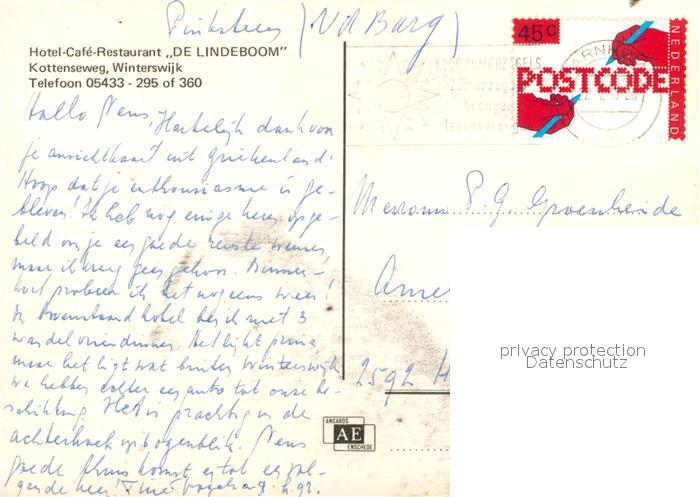 Pinksteren (Vd Burg)
Hotel-Café-Restaurant „DE LINDEBOOM"
Kottenseweg, Winterswijk
Telefoon 05433 - 295 of 360
Hallo Nens, Hartelijk dank voor
je ansichtkaart uit Griekenland!
Hoop dat je enthousiasme is ge-
bleven! Ik heb nog enige keren opge-
beld om je een goede reis te wensen,
maar ik kreeg geen gehoor. Binnen-
kort probeer ik het nog eens weer!
In bovenstaand hotel ben ik met 3
wandelvriendinnen. Het ligt prima
maar het ligt wat buiten Winterswijk
we hebben echter een auto tot onze be-
schikking. Het is prachtig in de
achterhoek op 't ogenblik. Nens
goede thuiskomst en tot een vol-
gende keer! Tine
45 c
POSTCODE
NEDERLAND
ARNH
KOOP ZOMERZEGELS
zomerzegels
brengen
levensvreugd
Mevrouw P. G. Groeneheide
Ame
2592 H
privacy protection
Datenschutz
ANCARDS
AE
ENSCHEDE